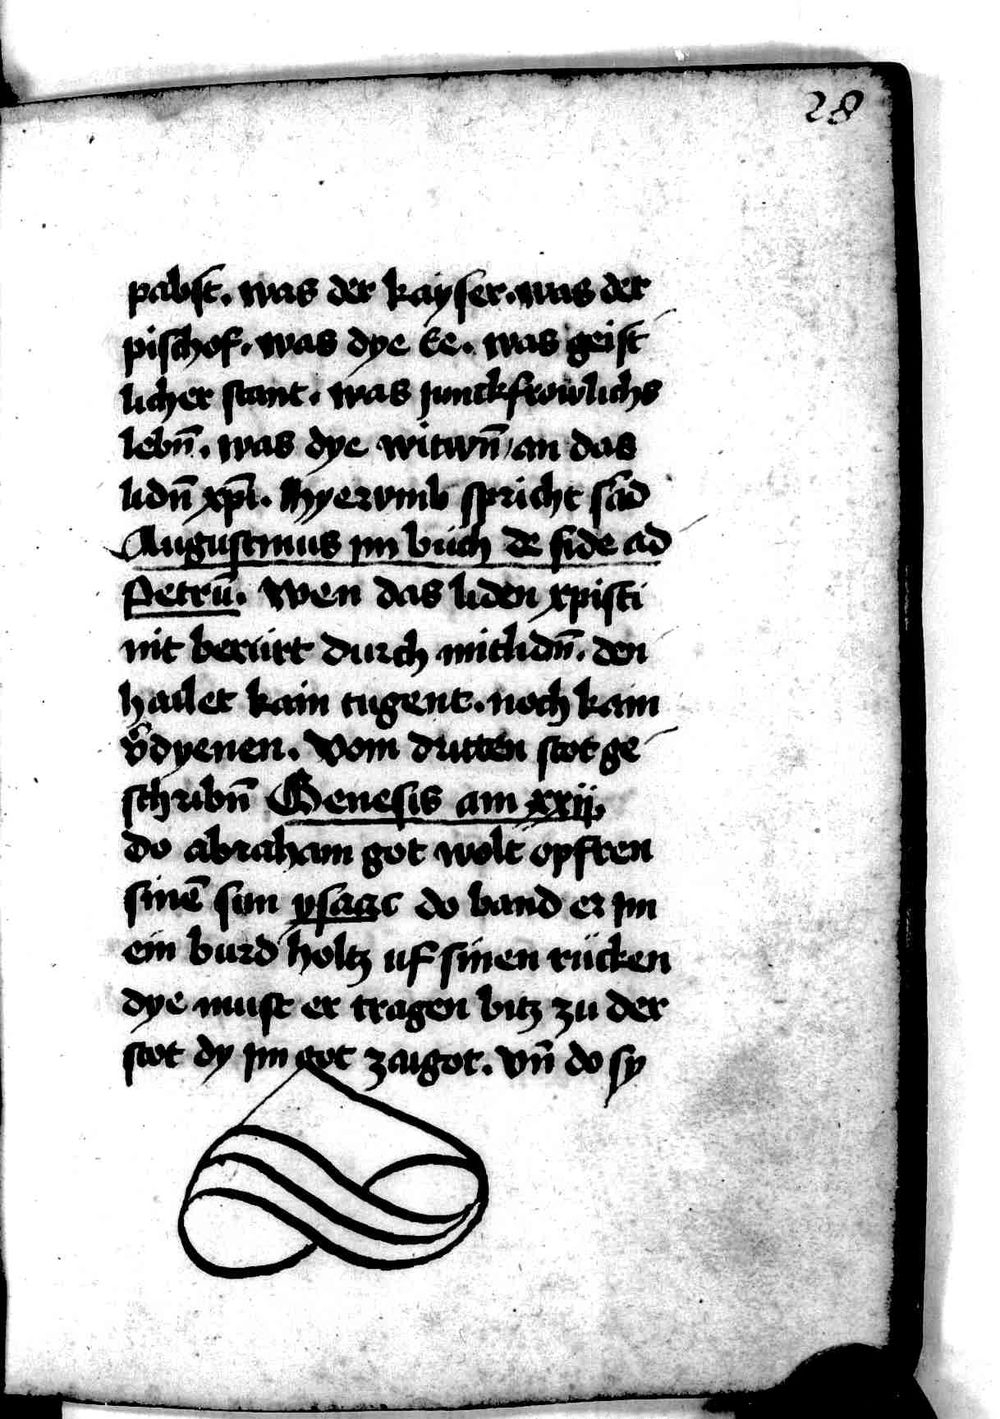 28
pabst. was der kayser. was der
pischof. was dye Ee. was geist
licher stant. was junckfrowlichs
lebn̄. was dye witwn̄ an das
lidn̄ xp̄i. Hyerumb spricht sād
Augustinus im buch de fide ad
Petrū. Wen das liden xpisti
nit berürt durch mitlidn̄. den
hailet kain tugent. noch kain
v̄dyenen. Vom dritten stot ge
schribn̄ Genesis am xxii.
do abraham got wolt opfren
sinē sun ysaac do band er im
ein burd holtz uf sinen rücken
dye must er tragen bitz zu der
stot dy im got zaigot. vn̄ do sy